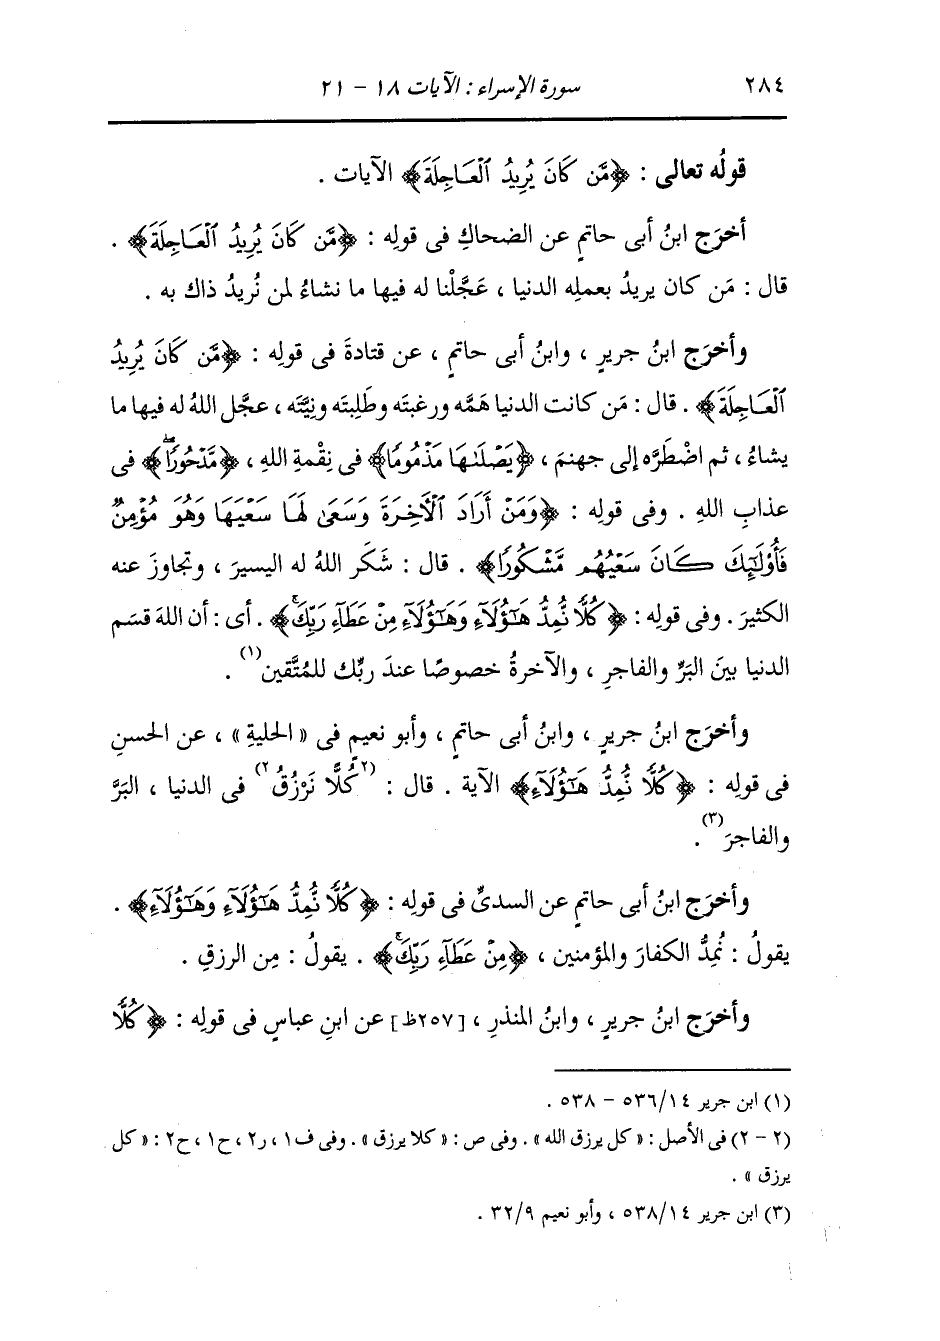 ٢٨٤ سورة الإسراء : الآيات ١٨ - ٢١
قولُه تعالى : ﴿مَّن كَانَ يُرِيدُ ٱلْعَاجِلَةَ﴾ الآيات .
أخرَج ابنُ أبى حاتمٍ عن الضحاكِ فى قولِه : ﴿مَّن كَانَ يُرِيدُ ٱلْعَاجِلَةَ﴾ .
قال : مَن كان يريدُ بعملِه الدنيا ، عَجَّلْنا له فيها ما نشاءُ لمن نُريدُ ذاك به .
وأخرَج ابنُ جريرٍ ، وابنُ أبى حاتمٍ ، عن قتادةَ فى قولِه : ﴿مَّن كَانَ يُرِيدُ
ٱلْعَاجِلَةَ﴾ . قال : مَن كانت الدنيا هَمَّه ورغبتَه وطَلِبتَه ونِيَّتَه ، عجَّل اللهُ له فيها ما
يشاءُ ، ثم اضْطَرَّه إلى جهنمَ ، ﴿يَصْلَىٰهَا مَذْمُومًا﴾ فى نِقْمةِ اللهِ ، ﴿مَّدْحُورًا﴾ فى
عذابِ اللهِ . وفى قولِه : ﴿وَمَنْ أَرَادَ ٱلْأَخِرَةَ وَسَعَىٰ لَهَا سَعْيَهَا وَهُوَ مُؤْمِنٌ
فَأُوْلَٰٓئِكَ كَانَ سَعْيُهُم مَّشْكُورًا﴾ . قال : شَكَر اللهُ له اليسيرَ ، وتجاوزَ عنه
الكثيرَ . وفى قولِه : ﴿كُلًّا نُّمِدُّ هَٰٓؤُلَآءِ وَهَٰٓؤُلَآءِ مِنْ عَطَآءِ رَبِّكَ﴾ . أى : أن اللهَ قسَم
الدنيا بينَ البَرِّ والفاجرِ ، والآخرةُ خصوصًا عندَ ربِّك للمُتَّقين(١) .
وأخرَج ابنُ جريرٍ ، وابنُ أبى حاتمٍ ، وأبو نعيمٍ فى « الحليةِ » ، عن الحسنِ
فى قولِه : ﴿كُلًّا نُّمِدُّ هَٰٓؤُلَآءِ﴾ الآية . قال : (٢كُلًّا نَرْزُقُ٢) فى الدنيا ، البَرَّ
والفاجرَ(٣) .
وأخرَج ابنُ أبى حاتمٍ عن السدىِّ فى قولِه : ﴿كُلًّا نُّمِدُّ هَٰٓؤُلَآءِ وَهَٰٓؤُلَآءِ﴾ .
يقولُ : نُمِدُّ الكفارَ والمؤمنين ، ﴿مِنْ عَطَآءِ رَبِّكَ﴾ . يقولُ : مِن الرزقِ .
وأخرَج ابنُ جريرٍ ، وابنُ المنذرِ ، [٢٥٧ظ] عن ابنِ عباسٍ فى قولِه : ﴿كُلًّا
(١) ابن جرير ١٤/٥٣٦ - ٥٣٨ .
(٢ - ٢) فى الأصل : « كل يرزق الله » . وفى ص : « كلا يرزق » . وفى ف١ ، ر٢ ، ح١ ، ح٢ : « كل
يرزق » .
(٣) ابن جرير ١٤/٥٣٨ ، وأبو نعيم ٩/٣٢ .